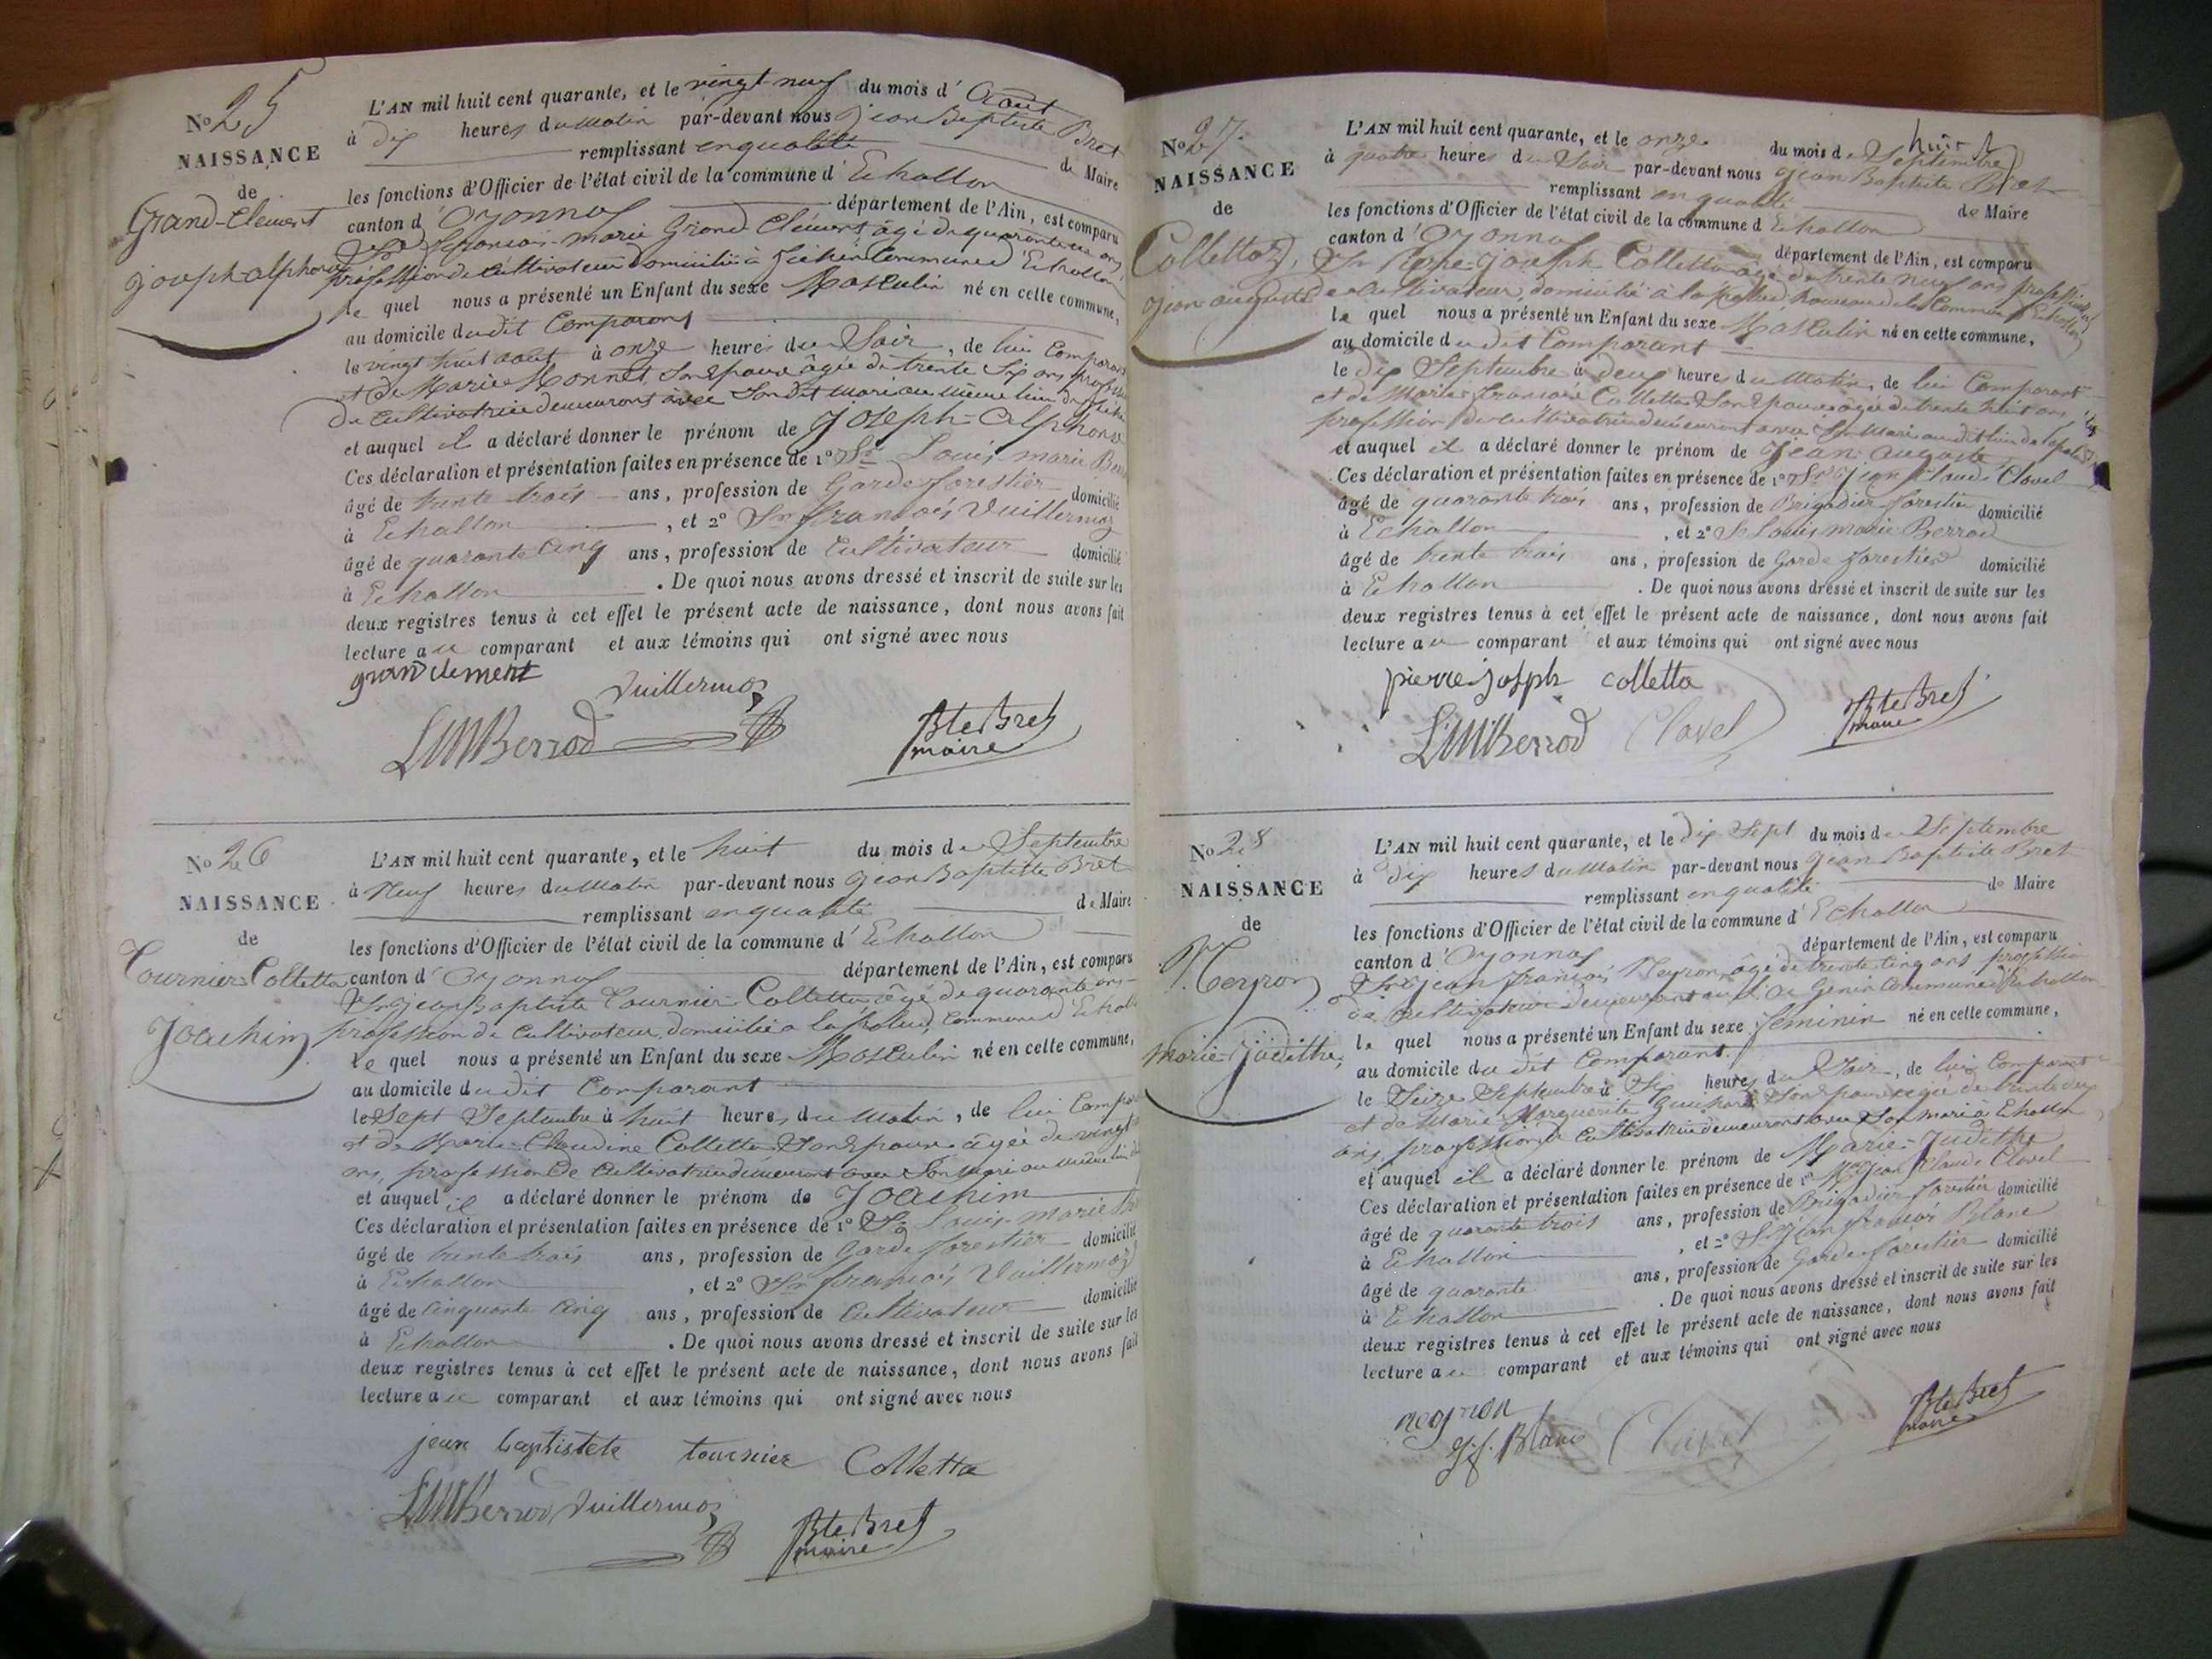 No 25
NAISSANCE
de
Grand-Clément
joseph alphonse
L'AN mil huit cent quarante, et le vingt-neuf du mois d' Août
à dix heures du Matin par-devant nous Jean Baptiste Bret
remplissant en qualité de Maire
les fonctions d'Officier de l'état civil de la commune d' Echallon
canton d' Oyonnax département de l'Ain, est comparu
Sr François-marie Grand Clément âgé de quarante ans
profession de Cultivateur domicilié à Commune d'Echallon
le quel nous a présenté un Enfant du sexe Masculin né en cette commune,
au domicile du dit Comparant
le vingt huit août à onze heures du Soir, de lui Comparant
et de Marie Monnet Son Epouse âgée de trente Six ans profession
de Cultivatrice demeurant avec Son dit mari au même lieu
et auquel il a déclaré donner le prénom de Joseph-Alphonse
Ces déclaration et présentation faites en présence de 1° Sr Louis-marie
âgé de trente trois ans, profession de Garde forestier domicilié
à Echallon, et 2° Sr françois Vuillermoz
âgé de quarante Cinq ans, profession de Cultivateur domicilié
à Echallon. De quoi nous avons dressé et inscrit de suite sur les
deux registres tenus à cet effet le présent acte de naissance, dont nous avons fait
lecture au comparant et aux témoins qui ont signé avec nous
grandclement
Vuillermoz
LMBerrod
Bte Bret
maire
No 26
NAISSANCE
de
Tournier-Colletta
Joachim
L'AN mil huit cent quarante, et le huit du mois de Septembre
à Neuf heures du Matin par-devant nous Jean Baptiste Bret
remplissant en qualité de Maire
les fonctions d'Officier de l'état civil de la commune d' Echallon
canton d' Oyonnax département de l'Ain, est comparu
Sr jean Baptiste Tournier-Colletta âgé de quarante ans
profession de Cultivateur, domicilié a lapalud, Commune d'Echallon
le quel nous a présenté un Enfant du sexe Masculin né en cette commune,
au domicile du dit Comparant
le Sept Septembre à huit heures du Matin, de lui
et de Marie-Claudine Colletta Son Epouse âgée de vingt
ans, profession de Cultivatrice demeurant avec Son Mari au même lieu
et auquel il a déclaré donner le prénom de Joachim
Ces déclaration et présentation faites en présence de 1° Sr Louis-marie
âgé de trente trois ans, profession de Garde forestier domicilié
à Echallon, et 2° Sr françois Vuillermoz
âgé de Cinquante Cinq ans, profession de Cultivateur domicilié
à Echallon. De quoi nous avons dressé et inscrit de suite sur les
deux registres tenus à cet effet le présent acte de naissance, dont nous avons fait
lecture au comparant et aux témoins qui ont signé avec nous
jean baptistete tournier Colletta
LMBerrod Vuillermoz
Bte Bret
maire
No 27
NAISSANCE
de
Collettaz,
jean auguste
huit
L'AN mil huit cent quarante, et le onze du mois de Septembre
à quatre heures du Soir par-devant nous Jean Baptiste Bret
remplissant en qualité de Maire
les fonctions d'Officier de l'état civil de la commune d Echallon
canton d' Oyonnax département de l'Ain, est comparu
Sr Pierre-Joseph Colletta âgé de trente neuf ans profession
de Cultivateur, domicilié à la palud hameau de la Commune d'Echallon
le quel nous a présenté un Enfant du sexe Masculin né en cette commune,
au domicile du dit Comparant
le dix Septembre à deux heures du Matin, de lui Comparant
et de Marie-Françoise Colletta Son Epouse âgée de trente huit ans
profession de Cultivatrice demeurant avec Son Mari au dit lieu de lapalud
et auquel il a déclaré donner le prénom de Jean-auguste
Ces déclaration et présentation faites en présence de 1° Sr Jean Claude Clavel
âgé de quarante trois ans, profession de Brigadier forestier domicilié
à Echallon, et 2° Sr Louis marie Berrod
âgé de trente trois ans, profession de Garde forestier domicilié
à Echallon. De quoi nous avons dressé et inscrit de suite sur les
deux registres tenus à cet effet le présent acte de naissance, dont nous avons fait
lecture au comparant et aux témoins qui ont signé avec nous
pierre joseph colletta
LMBerrod Clavel
Bte Bret
maire
No 28
NAISSANCE
de
Neyron
marie-judithe
L'AN mil huit cent quarante, et le dix-Sept du mois de Septembre
à dix heures du Matin par-devant nous Jean Baptiste Bret
remplissant en qualité de Maire
les fonctions d'Officier de l'état civil de la commune d' Echallon
canton d' Oyonnax département de l'Ain, est comparu
Sr Jean françois Neyron, âgé de trente Cinq ans profession
de Cultivateur demeurant au Commune d'Echallon
le quel nous a présenté un Enfant du sexe féminin né en cette commune,
au domicile du dit Comparant.
le Seize Septembre à Six heures du Soir, de lui Comparant
et de Marie Marguerite Son Epouse agée de trente deux
ans, profession de Cultivatrice demeurant avec Son mari à Echallon
et auquel il a déclaré donner le prénom de Marie-Judithe
Ces déclaration et présentation faites en présence de 1° Jean Claude Clavel
âgé de quarante trois ans, profession de Brigadier forestier domicilié
à Echallon, et 2° Sr Jean françois Blanc
âgé de quarante ans, profession de Garde forestier domicilié
à Echallon. De quoi nous avons dressé et inscrit de suite sur les
deux registres tenus à cet effet le présent acte de naissance, dont nous avons fait
lecture au comparant et aux témoins qui ont signé avec nous
neyron
J.f. Blanc Clavel
Bte Bret
maire